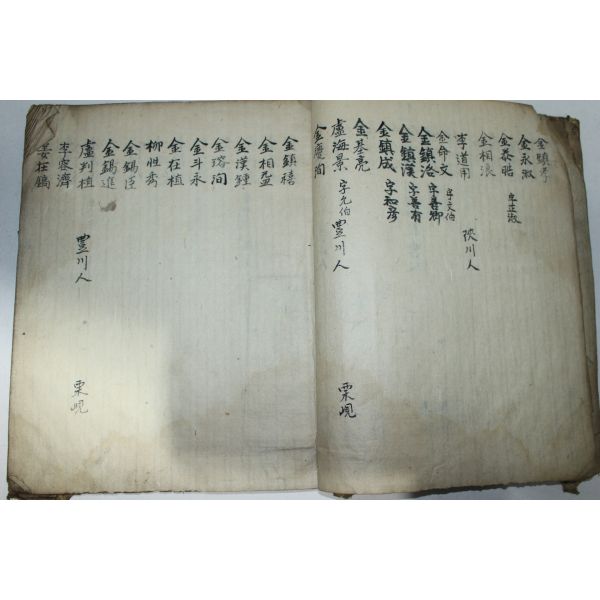 金鎭孝
金永淑
金泰晧 字正淑
金相浪
李道用 陜川人
金命文 字文伯
金鎭洛 字善卿
金鎭漢 字善有
金鎭成 字和彦
金基亮
盧海景 字允伯 豊川人 栗峴
金慶洵
金鎭禧
金相玉
金漢鍾
金瑢洵
金斗永
金在植
柳胜秀
金錫臣
金錫進
盧判植 豊川人 栗峴
李容濟
姜在鎬